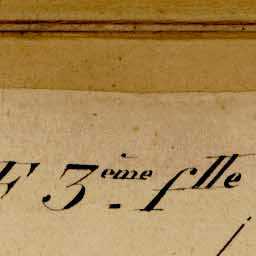 F 3.ème flle